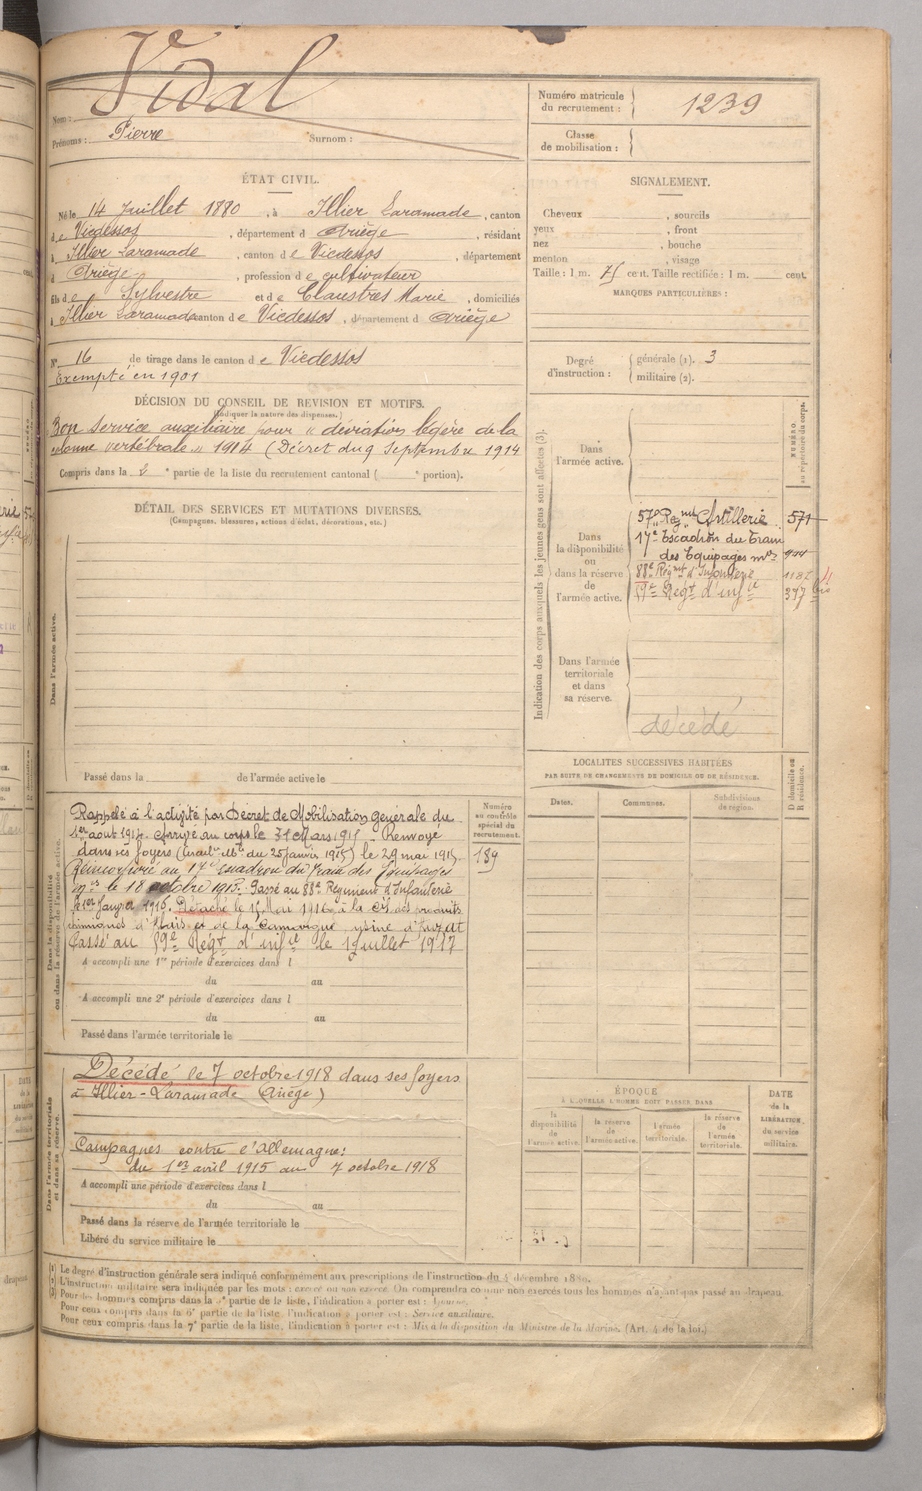 Vidal
Nom :
Prénoms : Pierre Surnom :
Numéro matricule du recrutement : 1239
Classe de mobilisation :
ÉTAT CIVIL.
Né le 14 Juillet 1880, à Illier Laramade, canton
de Vicdessos, département d Ariège, résidant
à Illier Laramade, canton de Vicdessos, département
d Ariège, profession de cultivateur
fils de Sylvestre et de Claustres Marie, domiciliés
à Illier Laramade canton de Vicdessos, département d Ariège
N° 16 de tirage dans le canton de Vicdessos
Exempté en 1901
DÉCISION DU CONSEIL DE REVISION ET MOTIFS.
(Indiquer la nature des dispenses.)
Bon service auxiliaire pour " déviation légère de la
colonne vertébrale " 1914 (Décret du 9 Septembre 1914
Compris dans la 2e partie de la liste du recrutement cantonal ( e portion).
SIGNALEMENT.
Cheveux , sourcils
yeux , front
nez , bouche
menton , visage
Taille : 1 m. 71 cent. Taille rectifiée : 1 m. cent.
MARQUES PARTICULIÈRES :
Degré d'instruction : générale (1). 3
militaire (2).
DÉTAIL DES SERVICES ET MUTATIONS DIVERSES.
(Campagnes, blessures, actions d'éclat, décorations, etc.)
Dans l'armée active.
Passé dans la de l'armée active le
Indication des corps auxquels les jeunes gens sont affectés (3).
NUMÉRO au répertoire du corps.
Dans l'armée active.
Dans la disponibilité ou dans la réserve de l'armée active.
57e Regmt Artillerie 571
17e Escadron du Train
des Equipages mres
88e Régmt d'Infanterie
59e Regt d'infie 377 bis
Dans l'armée territoriale et dans sa réserve.
décédé
LOCALITÉS SUCCESSIVES HABITÉES
PAR SUITE DE CHANGEMENTS DE DOMICILE OU DE RÉSIDENCE.
Dates. Communes. Subdivisions de région. D domicile ou R résidence.
Dans la disponibilité ou dans la réserve de l'armée active.
Numéro au contrôle spécial du recrutement.
189
Rappelé à l'activité par Décret de Mobilisation Générale du
1er août 1914. Arrivé au corps le 31 Mars 1915 Renvoyé
dans ses foyers (circulre Mlle du 25 Janvier 1915) le 29 mai 1915.
Réincorporé au 17e escadron du Train des Equipages
mres le 18 octobre 1915. Passé au 88e Régiment d'Infanterie
le 1er Janvier 1916. Détaché le 15 Mai 1916 à la Cie des produits
chimiques d'Alais et de la Camargue usine d'Auzat
Passé au 59e Regt d'infie le 1 Juillet 1917
A accompli une 1re période d'exercices dans l
du au
A accompli une 2e période d'exercices dans l
du au
Passé dans l'armée territoriale le
Dans l'armée territoriale et dans sa réserve.
Décédé le 7 octobre 1918 dans ses foyers
à Illier-Laramade (Ariège)
Campagnes contre l'Allemagne:
du 1er avril 1915 au 7 octobre 1918
A accompli une période d'exercices dans l
du au
Passé dans la réserve de l'armée territoriale le
Libéré du service militaire le
ÉPOQUE
À LAQUELLE L'HOMME DOIT PASSER DANS
la disponibilité de l'armée active. la réserve de l'armée active. l'armée territoriale. la réserve de l'armée territoriale.
DATE de la LIBÉRATION du service militaire.
(1) Le degré d'instruction générale sera indiqué conformément aux prescriptions de l'instruction du 4 décembre 1889.
(2) L'instruction militaire sera indiquée par les mots : exercé ou non exercé. On comprendra comme non exercés tous les hommes n'ayant pas passé au drapeau.
(3) Pour les hommes compris dans la partie de la liste, l'indication à porter est :
Pour ceux compris dans la 6e partie de la liste, l'indication à porter est : Service auxiliaire.
Pour ceux compris dans la 7e partie de la liste, l'indication à porter est : Mis à la disposition du Ministre de la Marine. (Art. 4 de la loi.)